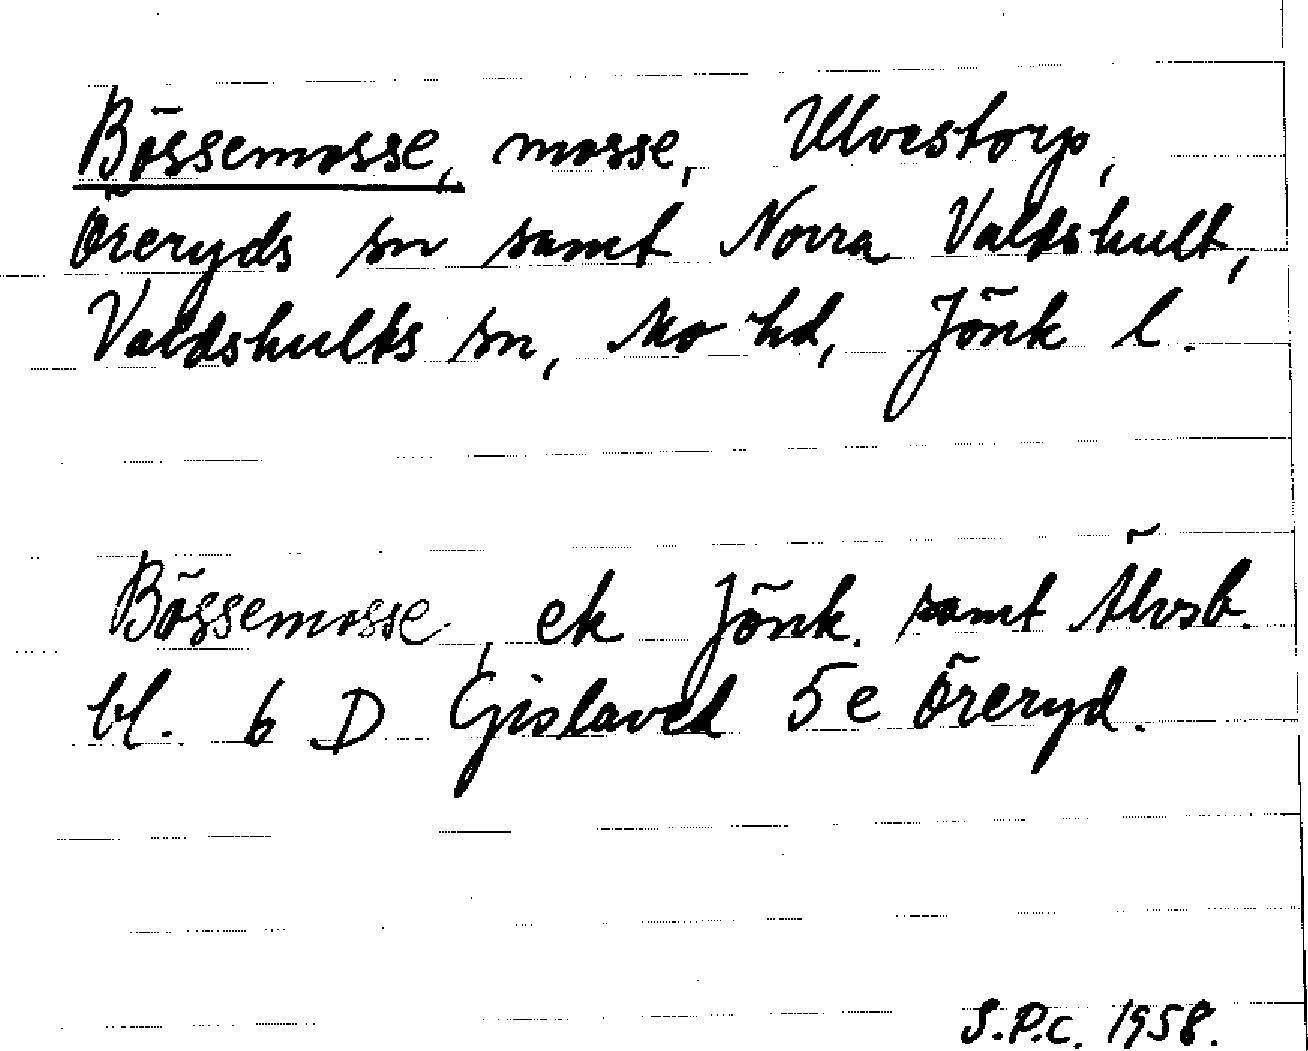 Bössemosse, mosse, Ulvestorp,
Öreryds sn samt Norra Valdshult,
Valdshults sn, Mo hd, Jönk l.
Bössemosse, ek Jönk. samt Älvsb.
bl. 6 D Gislaved 5e Öreryd.
S.P.C. 1958.